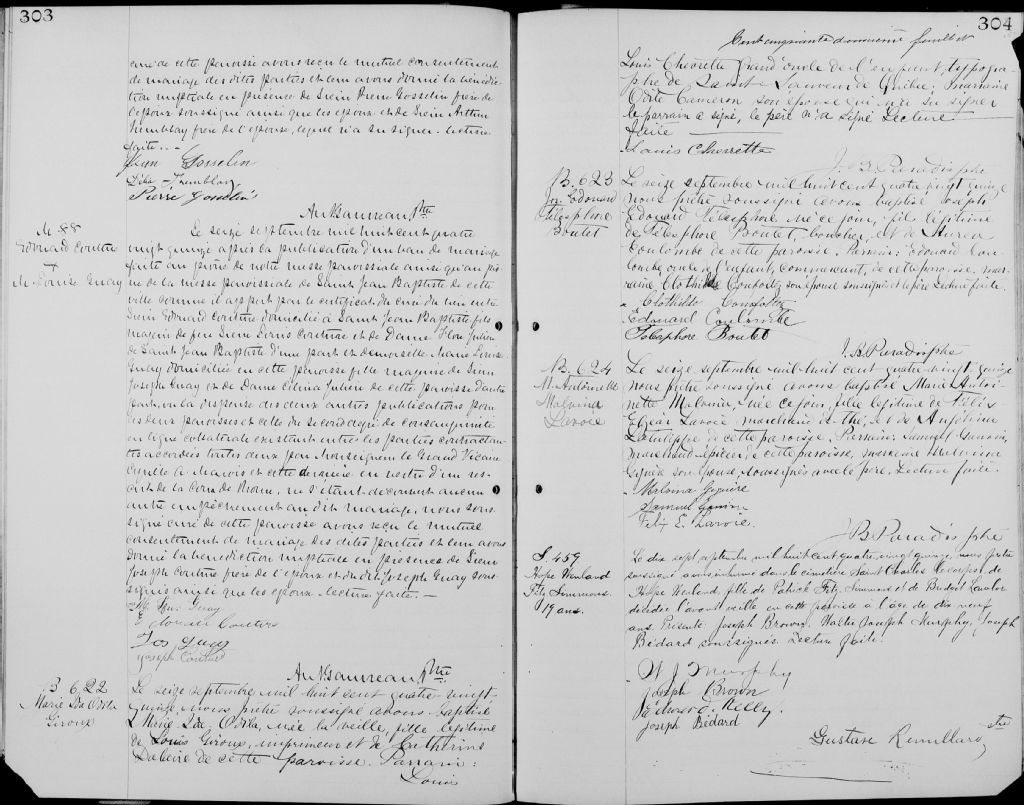 303
curé de cette paroisse avons reçu le mutuel consentement
de mariage des dites parties et leur avons donné la bénédic-
tion nuptiale en présence de Sieur Pierre Gosselin frère de
l'époux soussigné ainsi que les époux et de Sieur Arthur
Tremblay frère de l'épouse, lequel n'a su signer. lecture
faite. -
Jean Gosselin
Délia Tremblay
Pierre Gosselin
Ptre
M 88
Edouard Couture
+
M. Louise Guay
Le seize septembre mil huit cent quatre
vingt quinze après la publication d'un ban de mariage
faite au prône de notre messe paroissiale ainsi qu'au prô-
ne de la messe paroissiale de Saint Jean Baptiste de cette
ville comme il appert par le certificat du curé du lieu entre
Sieur Edouard Couture domicilié à Saint Jean Baptiste fils
majeur de feu Sieur Louis Couture et de Dame Flore Julien
de Saint Jean Baptiste d'une part et demoiselle Marie Louise
Guay domiciliée en cette paroisse fille majeure de Sieur
Joseph Guay et de Dame Célina Julien de cette paroisse d'autre
part, vu la dispense des deux autres publications pour
les deux paroisses et celle du second degré de consanguinité
en ligne collatérale existant entre les parties contractan-
tes accordées toutes deux par Monseigneur le Grand Vicaire
Cyrille A. Marois et cette dernière en vertu d'un res-
crit de la Cour de Rome, ne s'étant découvert aucun
autre empêchement au dit mariage, nous sous-
signé curé de cette paroisse avons reçu le mutuel
consentement de mariage des dites parties et leur avons
donné la bénédiction nuptiale en présence de Sieur
Joseph Couture frère de l'époux et du dit Joseph Guay sous-
signés ainsi que les époux. lecture faite. -
Guay
Edouard Couture
Jos Guay
Joseph Couture
Ptre
B 622
Marie Ida Odila
Giroux
Le seize septembre mil huit cent quatre-vingt-
quinze, nous prêtre soussigné avons baptisé
Marie Ida, Odila, née la veille, fille légitime
de Louis Giroux, imprimeur et de Catherine
de cette paroisse. Parrain:
Louis
304
Cent cinquante deuxième feuillet
Louis Chevrette grand'oncle de l'enfant, typogra-
phe de Saint Sauveur de Québec; marraine
Odile Cameron son épouse qui n'a su signer
le parrain a signé, le père n'a signé Lecture
faite
Louis Chevrette
J. B. Paradis ptre
B. 623
Jos. Edouard
Télesphore
Boutet
Le seize septembre mil huit cent quatre vingt quinze
nous prêtre soussigné avons baptisé Joseph
Edouard Télesphore né ce jour, fils légitime
de Télesphore Boutet, boucher, et de Aurea
Coulombe de cette paroisse. Parrain: Edouard Cou-
lombe oncle de l'enfant, commerçant, de cette paroisse. mar-
raine, Clothilde son épouse soussignés et le père. Lecture faite.
Clothilde
Edouard Coulombe
Télesphore Boutet
J. B. Paradis ptre
B. 624
M. Antoinette
Malvina
Lavoie
Le seize septembre mil huit cent quatre-vingt quinze
nous prêtre soussigné avons baptisé Marie Antoi-
nette Malvina, née ce jour, fille légitime de Félix
Elzéar Lavoie marchand de thé, et de Angelina
de cette paroisse. Parrain: Samuel
marchand épicier, de cette paroisse, marraine Malvina
Giguère son épouse, soussignés avec le père. Lecture faite.
Malvina Giguère
Samuel
Félix E. Lavoie.
J B Paradis ptre
S. 459
Hope Wenland
Fitz Simmons.
19 ans.
Le dix sept septembre mil huit cent quatre vingt quinze, nous prêtre
soussigné avons inhumé dans le cimetière Saint Charles le corps de
Hope Wenland, fille de Patrick Fitz Simmons et de Bridget Lawlor
décédée l'avant veille en cette paroisse à l'âge de dix neuf
ans. Présents Joseph Brown, Walter Joseph Murphy, Joseph
Bédard soussignés. Lecture faite.
W J Murphy
Joseph Brown
Edward Kelly.
Joseph Bédard
Gustave Rémillard, ptre